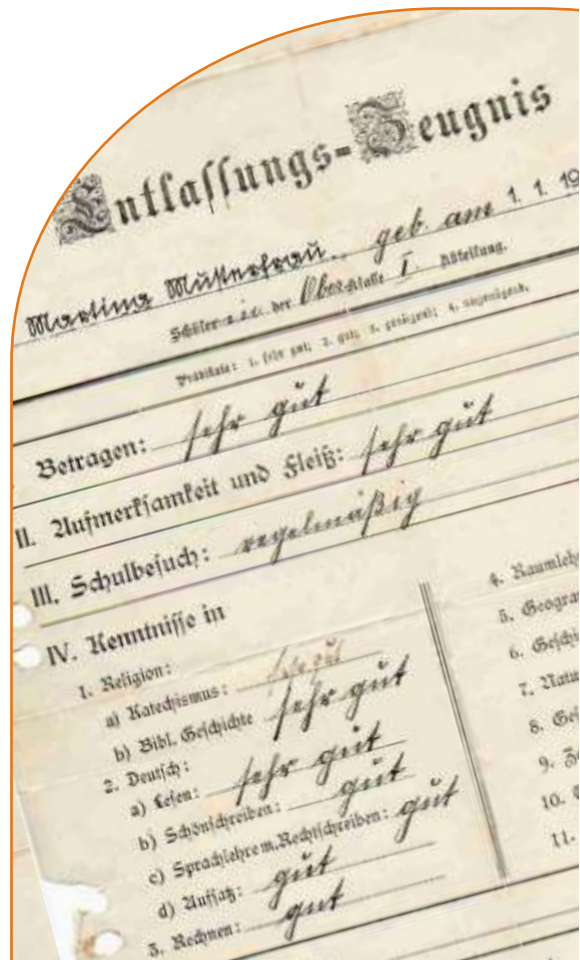 Entlassungs-Zeugnis
Martina Musterfrau.. geb. am 1. 1. 19
Schülerin der Oberklasse I. Abteilung.
Prädikate: 1. sehr gut; 2. gut; 3. genügend; 4. ungenügend.
Betragen: sehr gut
II. Aufmerksamkeit und Fleiß: sehr gut
III. Schulbesuch: regelmäßig
IV. Kenntnisse in
1. Religion:
a) Katechismus: sehr gut
b) Bibl. Geschichte sehr gut
2. Deutsch:
a) Lesen: sehr gut
b) Schönschreiben: gut
c) Sprachlehre m. Rechtschreiben: gut
d) Aufsatz: gut
3. Rechnen: gut
4. Raumleh
5. Geogra
6. Geschi
7. Natu
8. Ges
9.
10.
11.